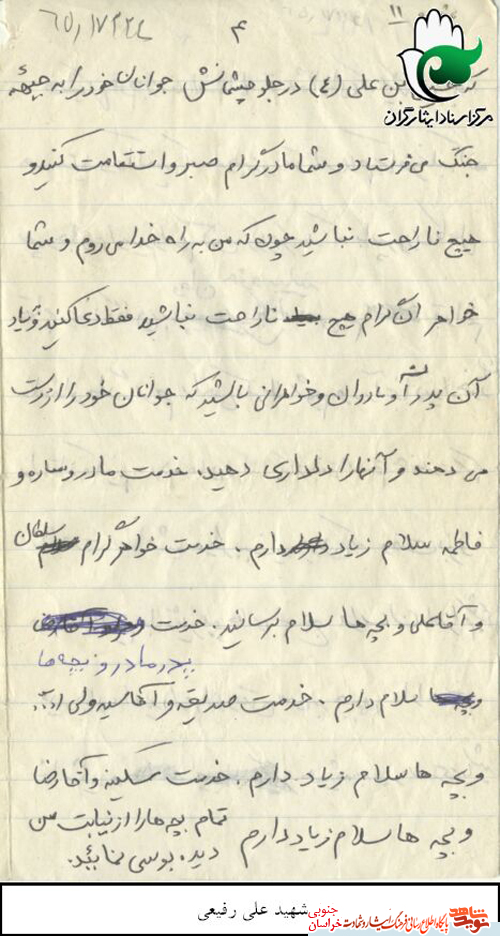 ۶۵/۱۷۲۲۴
۴
۱۱
مرکز اسناد ایثارگران
که حسین بن علی (ع) در جلو چشمانش جوانان خود را به جبههٔ
جنگ می فرستاد و شما مادر گرام صبر و استقامت کنید و
هیچ ناراحت نباشید چون که من به راه خدا می روم و شما
خواهران گرام هیچ ناراحت نباشید فقط دعا کنید و بیاد
آن پدران و مادران و خواهرانی باشید که جوانان خود را از دست
می دهند و آنها را دلداری دهید. خدمت مادر و ساره و
فاطمه سلام زیاد دارم. خدمت خواهر گرام سلطان
و آقاعلی و بچه ها سلام برسانید. خدمت
پدر مادر و بچه ها
سلام دارم. خدمت صدیقه و آقا سید ولی
و بچه ها سلام زیاد دارم. خدمت سکینه و آقا رضا
و بچه ها سلام زیاد دارم تمام بچه ها را از نیابت من
دیده بوسی نمائید.
شهید علی رفیعی
نوید شاهد پایگاه اطلاع رسانی فرهنگ ایثار و شهادت خراسان جنوبی